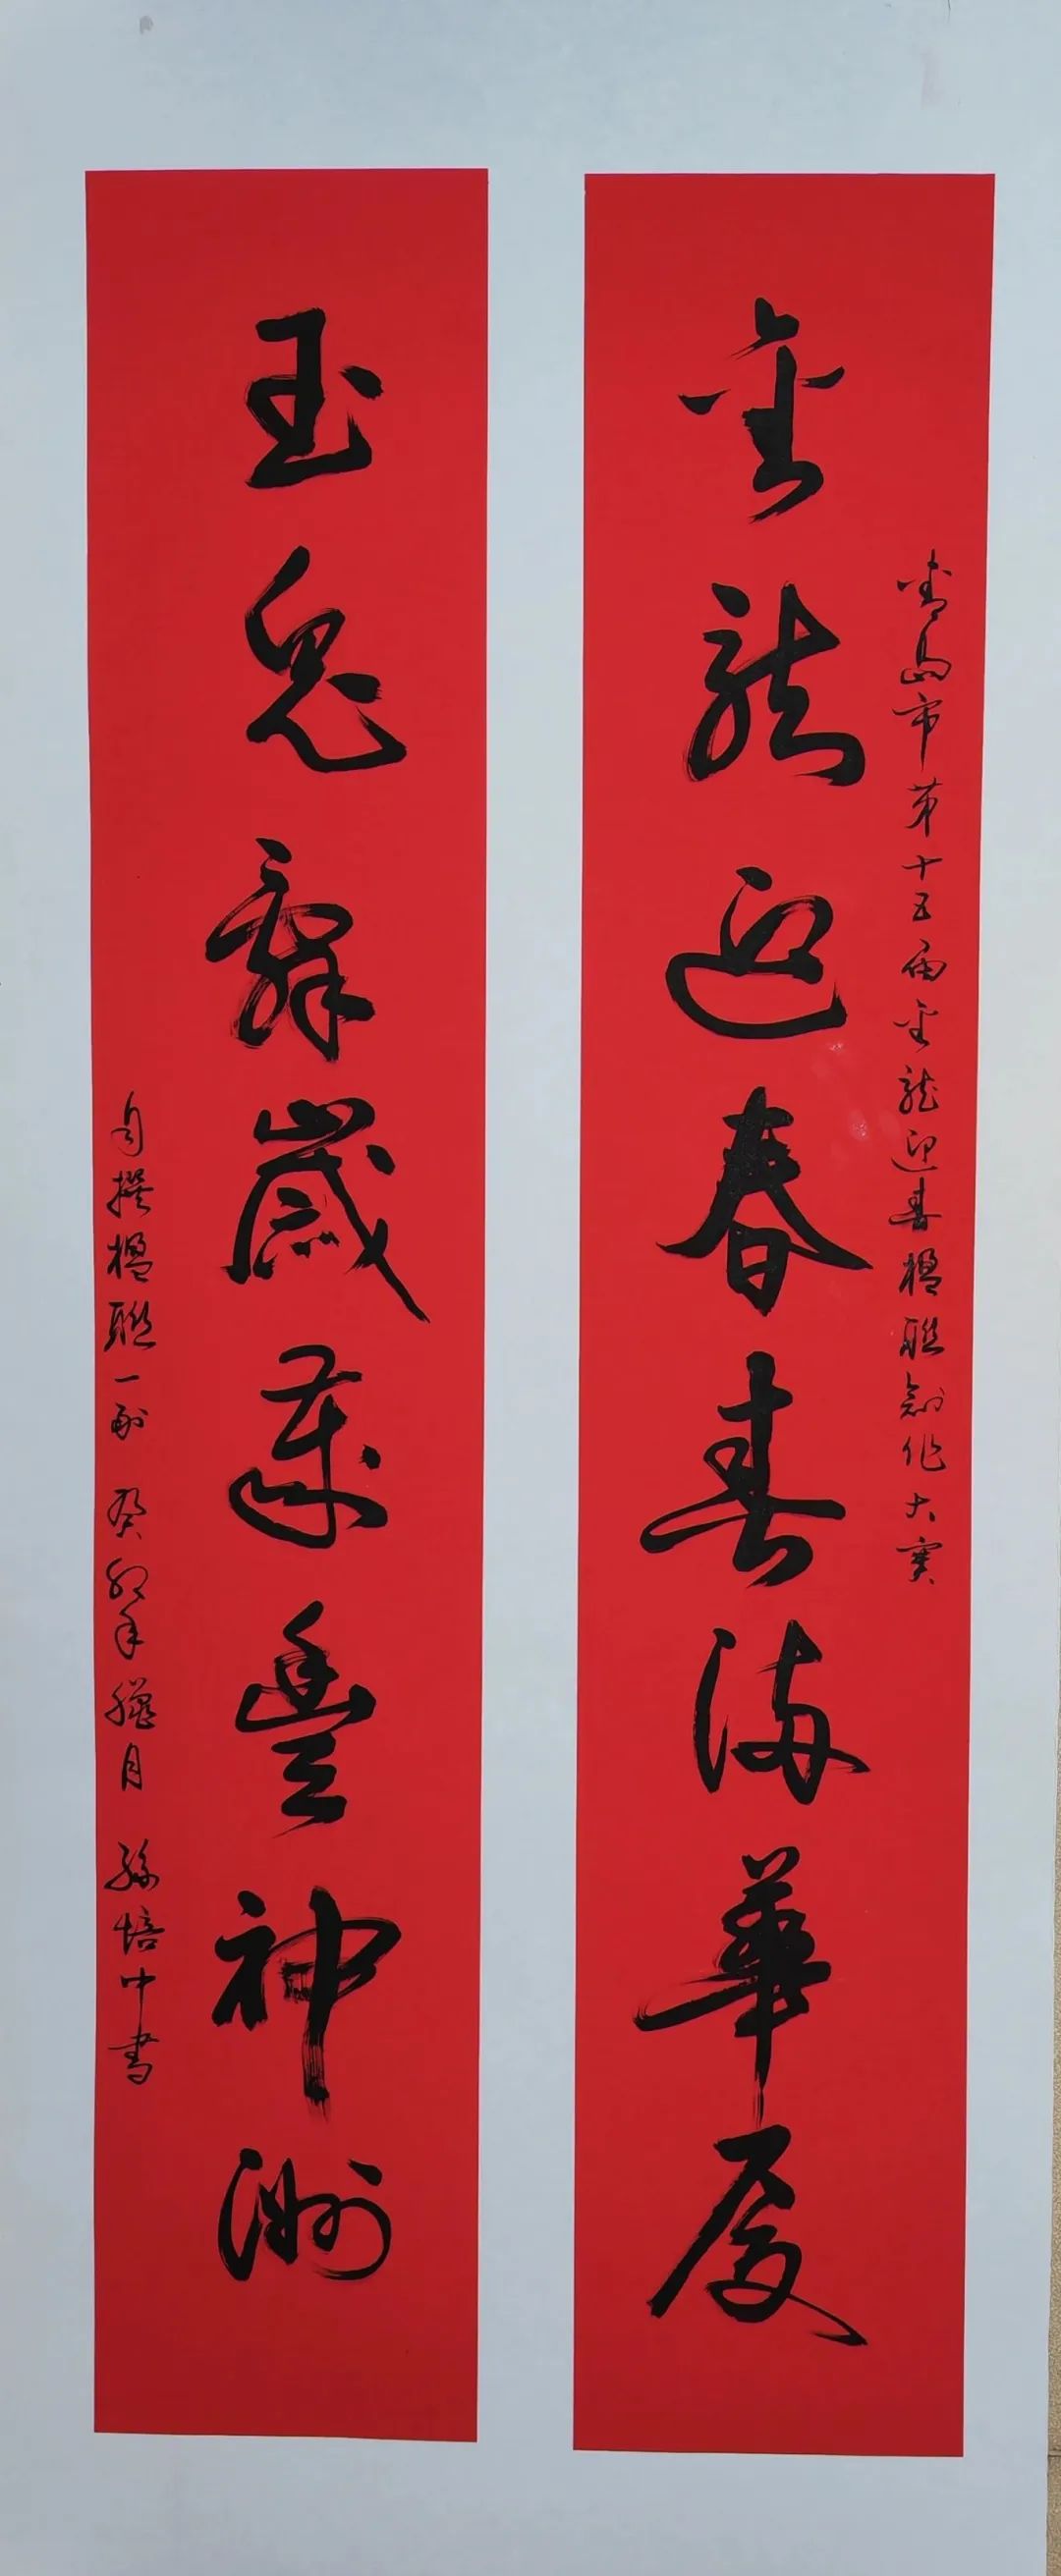 青島市第十五届金龍迎春楹聯創作大賽
金龍迎春春滿華厦
玉兔辭歲歲豐神洲
自撰楹聯一副 癸卯年臘月 孫培中書